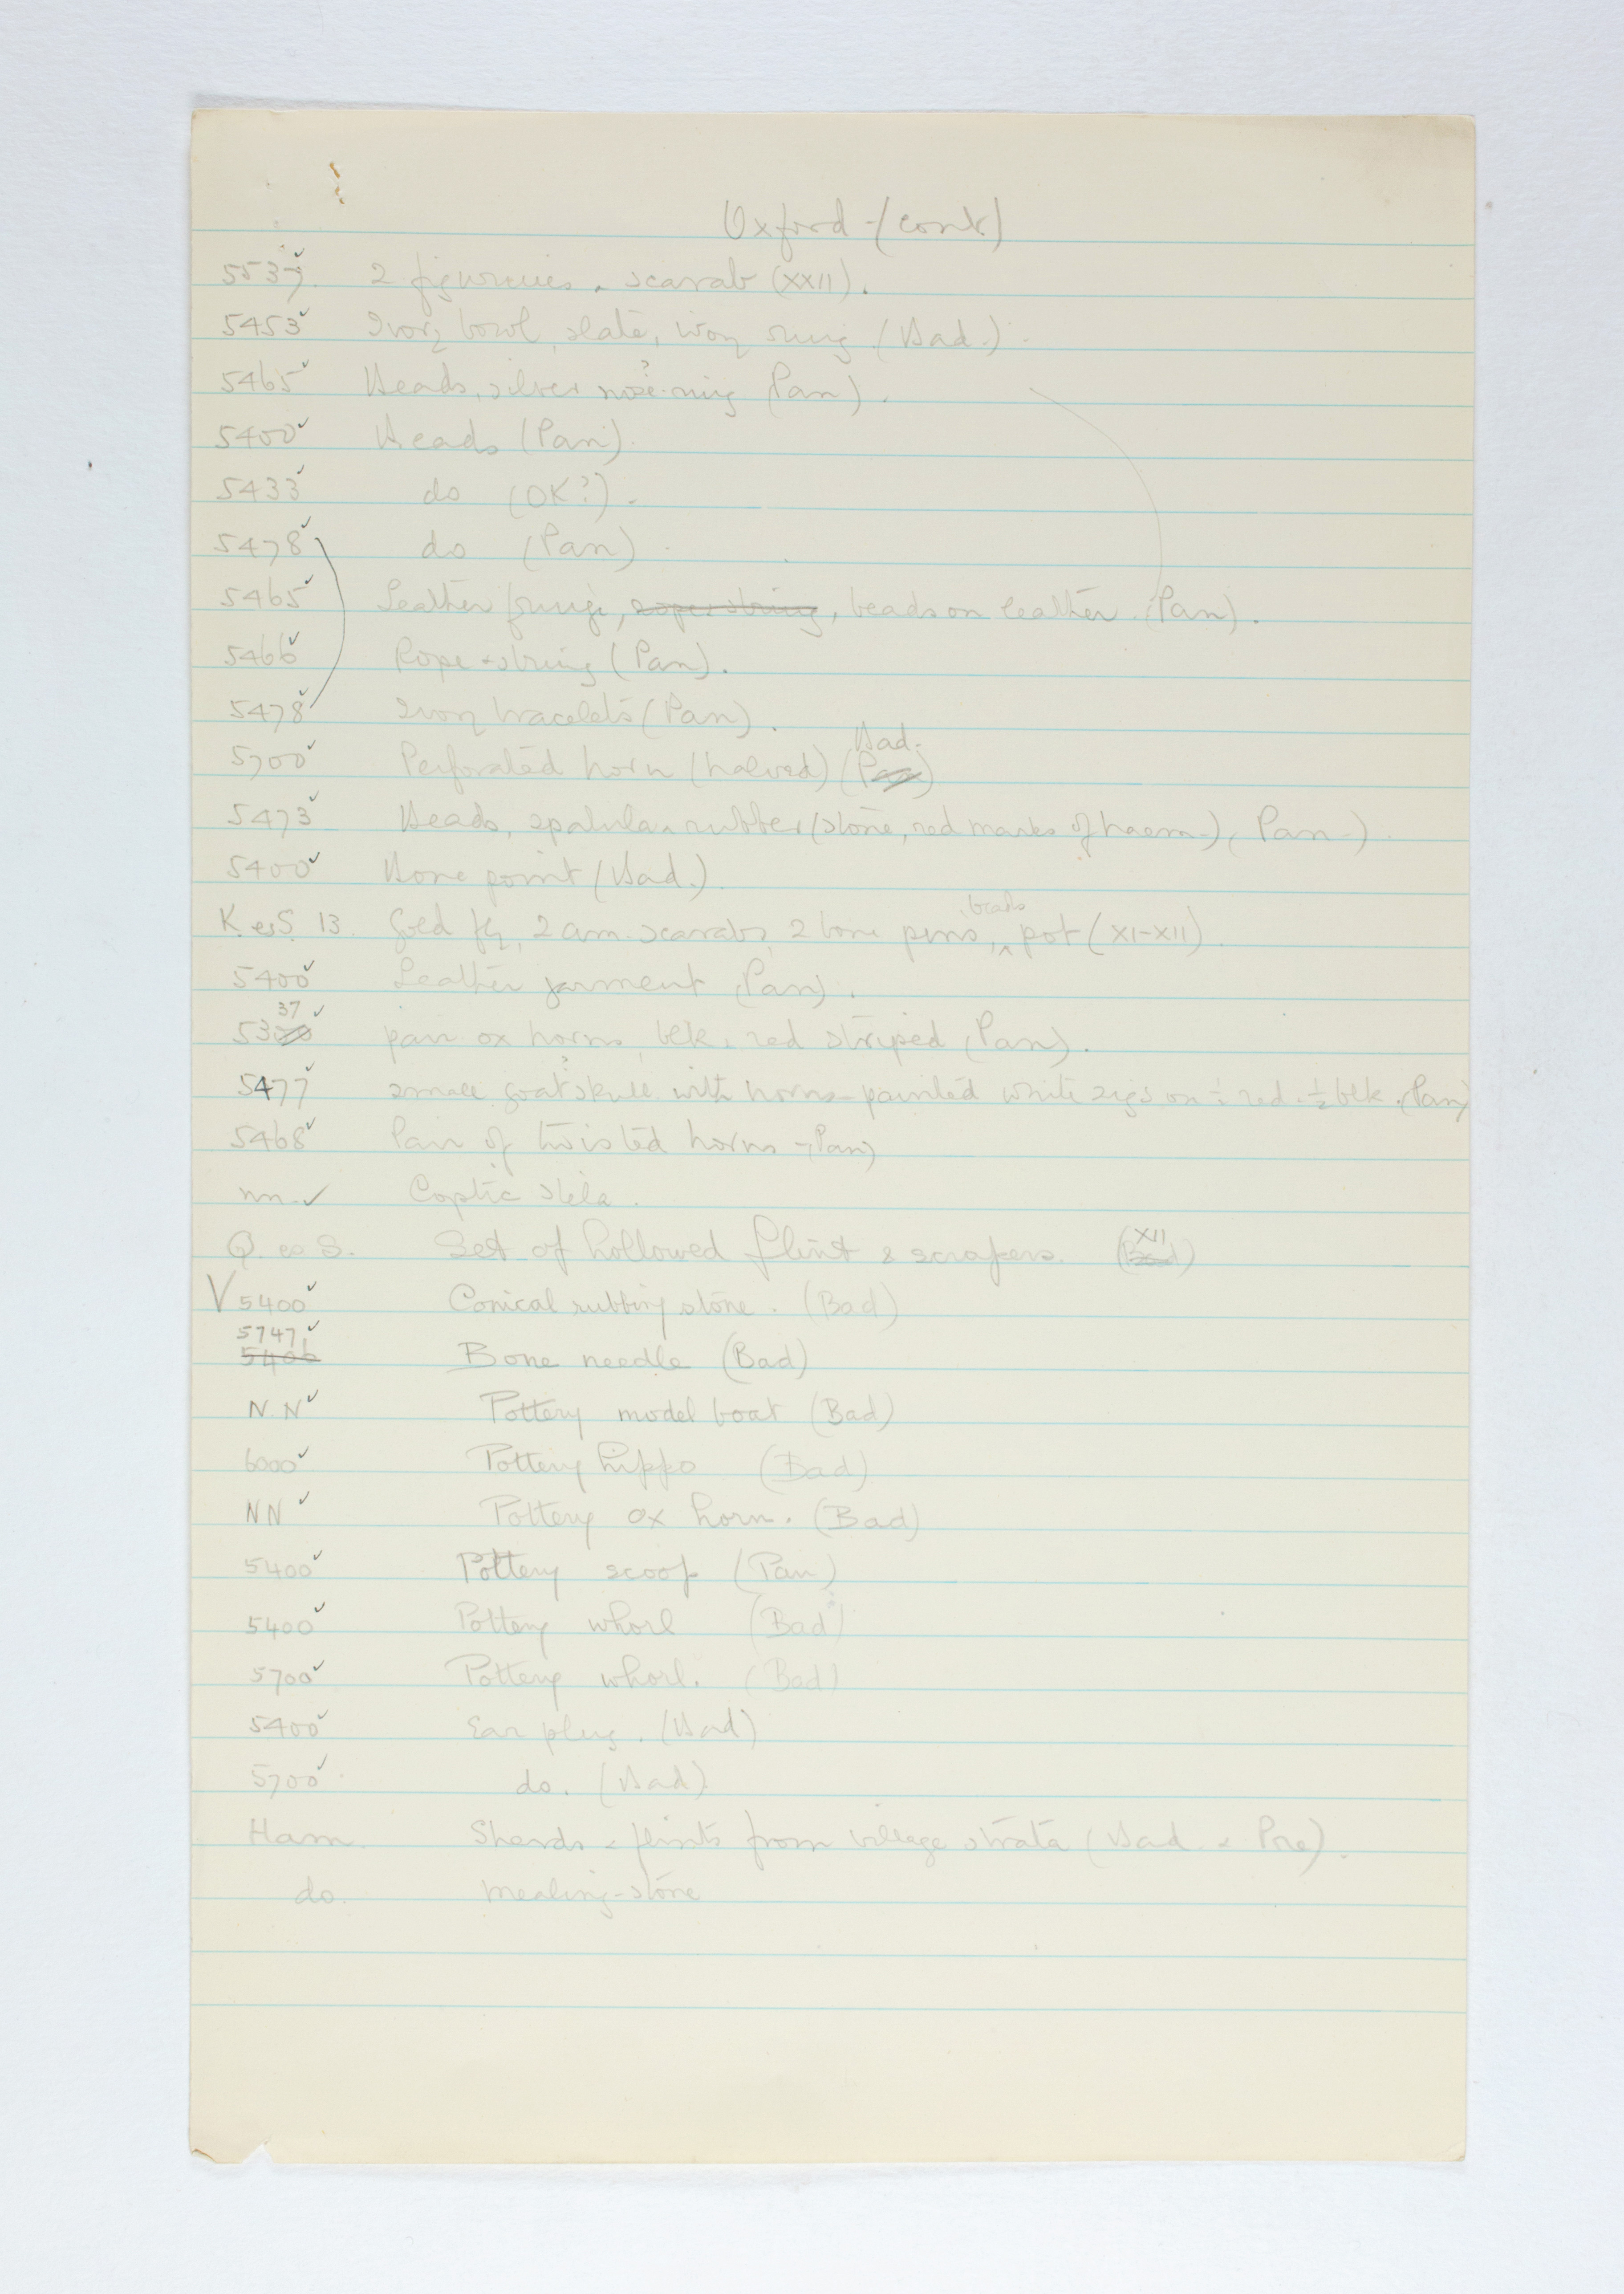 Oxford - (cont)
5537 ✓ 2 figurines, scarab (XXII).
5453 ✓ Ivory bowl, slate, ivory ring (Bad.).
5465 ✓ Beads, silver nose-ring ? (Pan).
5400 ✓ Beads (Pan).
5433 ✓ do (OK?).
5478 ✓ do (Pan)
5465 ✓ Leather fringe, rope & string, beads on leather (Pan).
5466 ✓ Rope & string (Pan).
5478 ✓ Ivory bracelets (Pan).
5700 ✓ Perforated horn (halved) (Pan) Bad.
5473 ✓ Beads, spatula & rubber (stone, red marks of haem-), (Pan-).
5400 ✓ Bone point (Bad.)
K. es S. 13. Gold fly, 2 am. scarabs, 2 bone pins, beads, pot (XI-XII).
5400 ✓ Leather garment (Pan).
53 37 ✓ pair ox horns, blk & red striped (Pan).
5477 ✓ small goat ? skull with horns - painted white zigs on ½ red & ½ blk. (Pan)
5468 ✓ Pair of twisted horns - (Pan)
nn. ✓ Coptic stela.
Q. es S. Set of hollowed flint & scrapers. (Bad) XII
V 5400 ✓ Conical rubbing stone. (Bad)
5747 ✓
5406 Bone needle (Bad)
N.N ✓ Pottery model boat (Bad)
6000 ✓ Pottery hippo (Bad)
NN ✓ Pottery ox horn. (Bad)
5400 ✓ Pottery scoop (Pan)
5400 ✓ Pottery whorl (Bad)
5700 ✓ Pottery whorl. (Bad)
5400 ✓ Ear plug. (Bad)
5700 ✓ do. (Bad)
Ham. Sherds & flints from village strata (Bad & Pre).
do. Mealing-stone